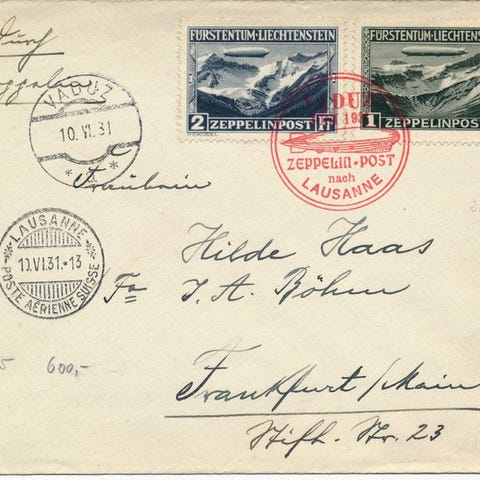 Durch
FÜRSTENTUM·LIECHTENSTEIN
2 ZEPPELINPOST Fr
FÜRSTENTUM·LIECHTENSTEIN
1 ZEPPELINPOST
VADUZ
10.VI.31
ZEPPELIN-POST
nach
LAUSANNE
Fräulein
LAUSANNE
10.VI.31.-13
POSTE AÉRIENNE SUISSE
Hilde Haas
Fa J. A. Böhm
Frankfurt/Main
Stift. Str. 23
5 600,-